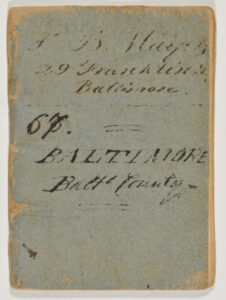 F. B. May
29 Franklin St
Baltimore
67.
BALTIMORE
Balt. County